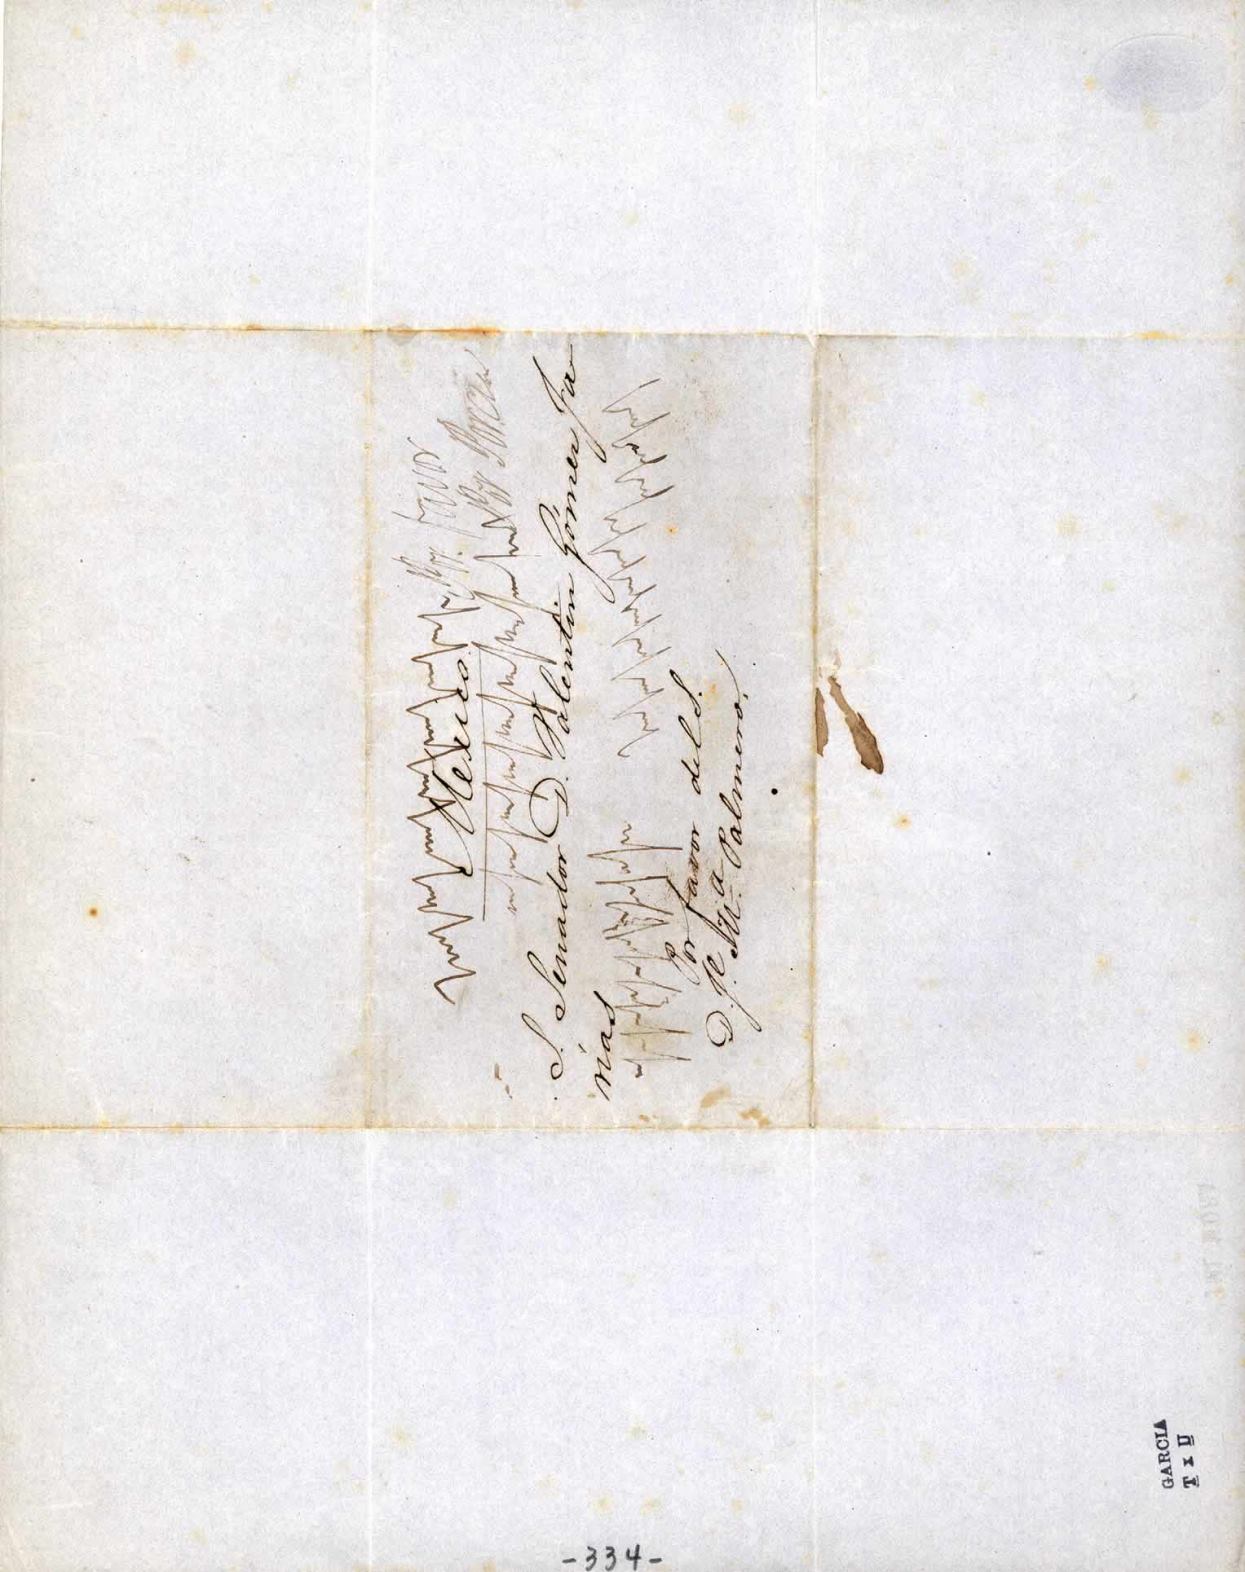 Mexico
S. Senador D. Valentin Gómez Fa
rias
Por favor del S.
D. Je Ma Palmero.
GARCIA
T x U
-334-